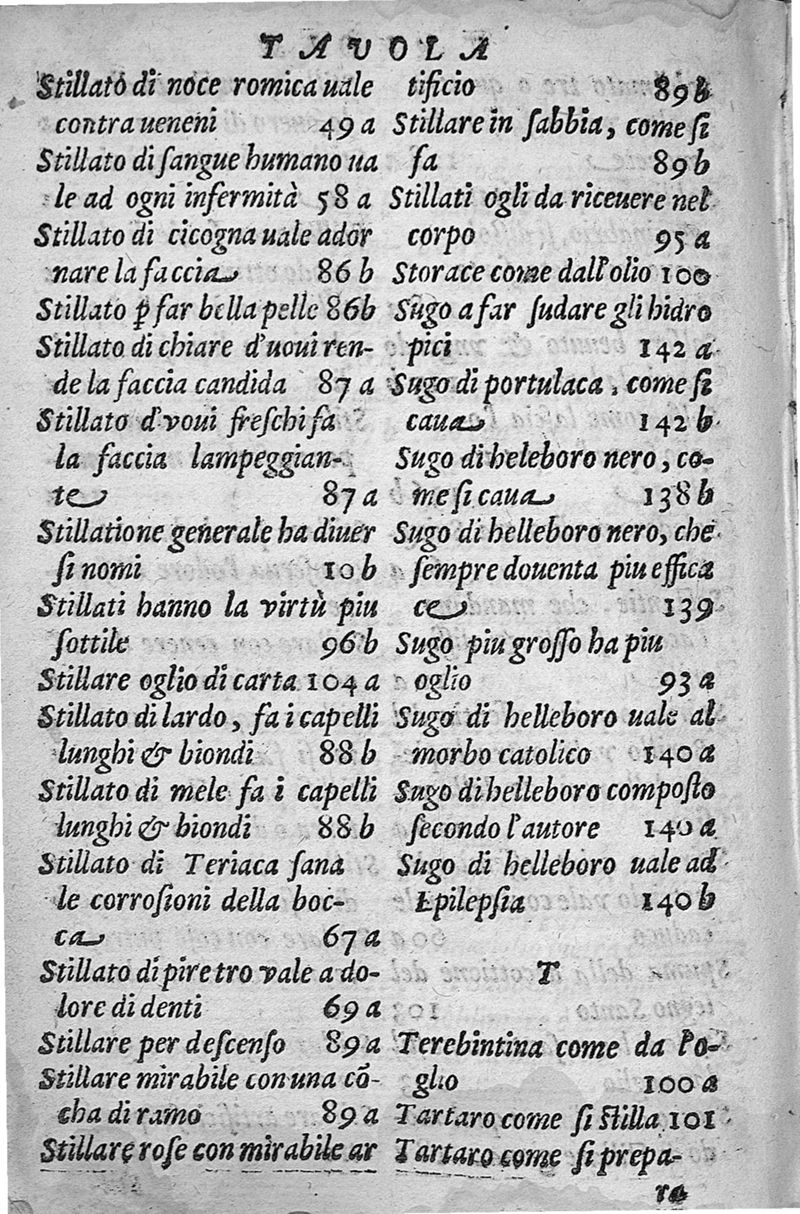 TAVOLA
Stillato di noce romica uale
contra ueneni 49 a
Stillato di sangue humano ua
le ad ogni infermità 58 a
Stillato di cicogna uale ador
nare la faccia 86 b
Stillato p̱ far bella pelle 86b
Stillato di chiare d'uoui ren-
de la faccia candida 87 a
Stillato d'voui freschi fa
la faccia lampeggian-
te 87 a
Stillatione generale ha diuer
si nomi 10 b
Stillati hanno la virtù piu
sottile 96 b
Stillare oglio di carta 104 a
Stillato di lardo, fa i capelli
lunghi & biondi 88 b
Stillato di mele fa i capelli
lunghi & biondi 88 b
Stillato di Teriaca sana
le corrosioni della boc-
ca 67 a
Stillato di piretro vale a do-
lore di denti 69 a
Stillare per descenso 89 a
Stillare mirabile con una cō-
cha di ramo 89 a
Stillare rose con mirabile ar
tificio 89 b
Stillare in sabbia, come si
fa 89 b
Stillati ogli da riceuere nel
corpo 95 a
Storace come dall'olio 100
Sugo a far sudare gli hidro
pici 142 a
Sugo di portulaca, come si
caua 142 b
Sugo di heleboro nero, co-
me si caua 138 b
Sugo di helleboro nero, che
sempre douenta piu effica
ce 139
Sugo piu grosso ha piu
oglio 93 a
Sugo di helleboro uale al
morbo catolico 140 a
Sugo di helleboro composto
secondo l'autore 140 a
Sugo di helleboro uale ad
Epilepsia 140 b
T
Terebintina come da l'o-
glio 100 a
Tartaro come si stilla 101
Tartaro come si prepa-
ra